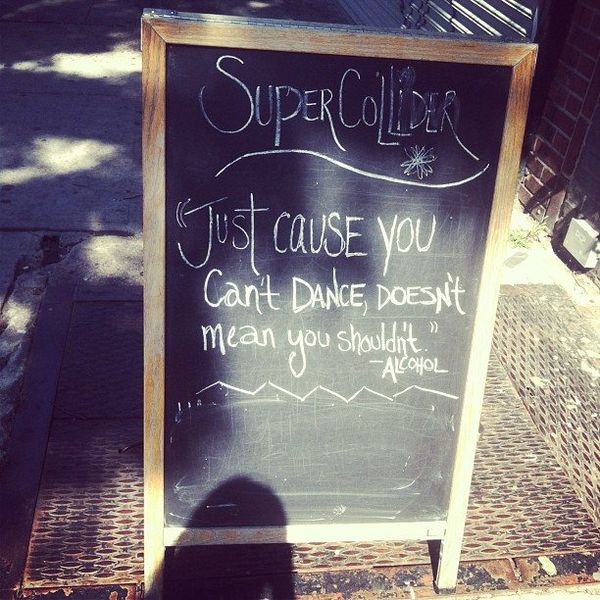 SUPER COLLIDER
"JUST CAUSE YOU
Can't DANCE, DOESN'T
mean you shouldn't."
-ALCOHOL